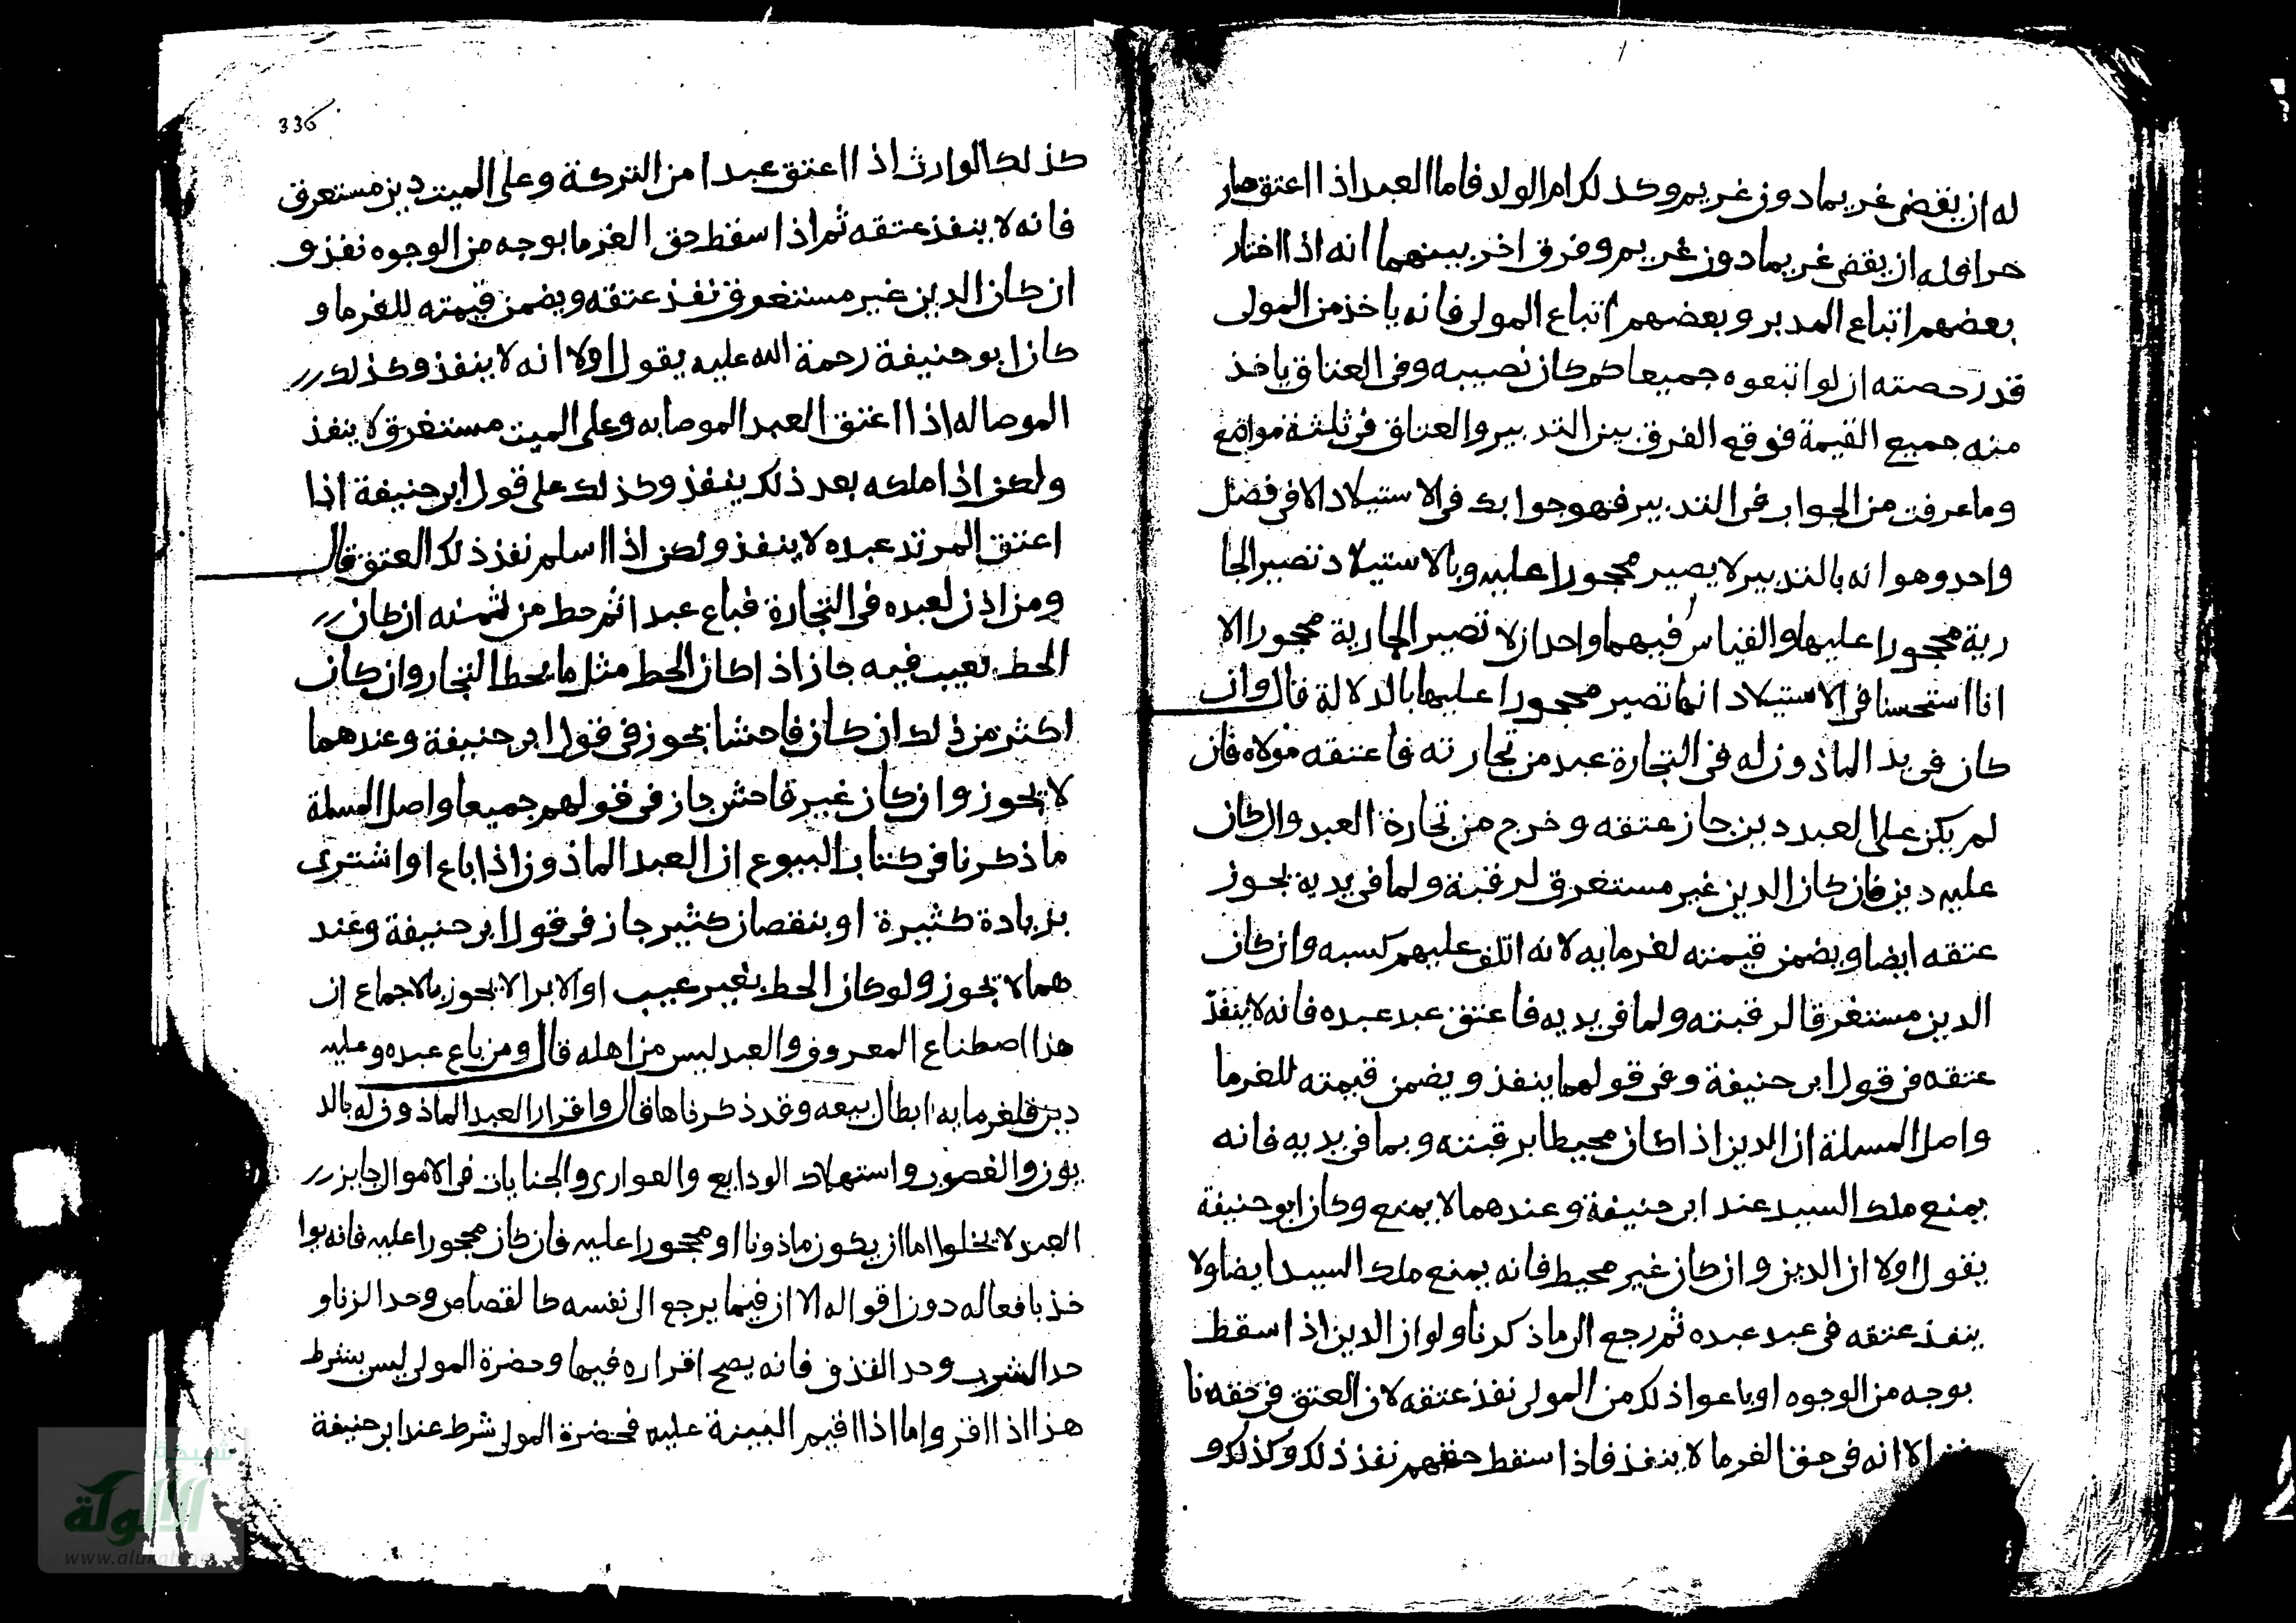 له ان يقضى غريما دون غريم وكذلك ام الولد فاما العبد اذا اعتق صار
حرا فله ان يقضى غريما دون غريم وفرق اخر بينهما انه اذا اختار
بعضهم اتباع المدبر وبعضهم اتباع المولى فانه ياخذ من المولى
قدر حصته ان لو اتبعوه جميعا كم كان نصيبه وفى العتاق ياخذ
منه جميع القيمة فوقع الفرق بين التدبير والعتاق فى ثلثة مواضع
وما عرفت من الجواب فى التدبير فهو جوابك فى الاستيلاد الا فى فصل
واحد وهو انه بالتدبير لا يصير محجورا عليه وبالاستيلاد تصير الجا
رية محجورا عليها والقياس فيهما واحد ان لا تصير الجارية محجورا الا
انا استحسنا فى الاستيلاد انها تصير محجورا عليها بالدلالة قال وان
كان فى يد الماذون له فى التجارة عبد من تجارته فاعتقه مولاه فان
لم يكن على العبد دين جاز عتقه وخرج من تجارة العبد وان كان
عليه دين فان كان الدين غير مستغرق لرقبة ولما فى يديه يجوز
عتقه ايضا ويضمن قيمته لغرمايه لانه اتلف عليهم كسبه وان كان
الدين مستغرقا لرقبته ولما فى يديه فاعتق عبد عبده فانه لا ينفذ
عتقه فى قول ابى حنيفة وفى قولهما ينفذ ويضمن قيمته للغرما
واصل المسلة ان الدين اذا كان محيطا برقبته وبما فى يديه فانه
يمنع ملك السيد عند ابى حنيفة وعندهما لا يمنع وكان ابو حنيفة
يقول اولا ان الدين وان كان غير محيط فانه يمنع ملك السيد ايضا ولا
ينفذ عتقه فى عبد عبده ثم رجع الى ما ذكرنا ولو ان الدين اذا سقط
بوجه من الوجوه او باعوا ذلك من المولى نفذ عتقه لان العتق فى حقه نا
الا انه فى حق الغرما لا ينفذ فاذا سقط حقهم نفذ ذلك وكذلك و
336
كذلك الوارث اذا اعتق عبدا من التركة وعلى الميت دين مستغرق
فانه لا ينفذ عتقه ثم اذا سقط حق الغرما بوجه من الوجوه نفذ و
ان كان الدين غير مستغرق نفذ عتقه ويضمن قيمته للغرما و
كان ابو حنيفة رحمة الله عليه يقول اولا انه لا ينفذ وكذلك
الموصا له اذا اعتق العبد الموصا به وعلى الميت مستغرق لا ينفذ
ولكن اذا ملكه بعد ذلك ينفذ وكذلك على قول ابى حنيفة اذا
اعتق المرتد عبده لا ينفذ ولكن اذا اسلم نفذ ذلك العتق قال
ومن اذن لعبده فى التجارة فباع عبدا ثم حط من ثمنه ان كان
الحط بعيب فيه جاز اذا كان الحط مثل ما يحط التجار وان كان
اكثر من ذلك ان كان فاحشا يجوز فى قول ابى حنيفة وعندهما
لا يجوز وان كان غير فاحش جاز فى قولهم جميعا واصل المسلة
ما ذكرنا فى كتاب البيوع ان العبد الماذون اذا باع او اشترى
بزيادة كثيرة او بنقصان كثير جاز فى قول ابى حنيفة وعند
هما لا يجوز ولو كان الحط بغير عيب او الابرا لا يجوز بالاجماع ان
هذا اصطناع المعروف والعبد ليس من اهله قال ومن باع عبده وعليه
دين فلغرمايه ابطال بيعه وقد ذكرناها قال واقرار العبد الماذون له بالد
يون والغصوب واستهلاك الودايع والعوارى والجنايات فى الاموال جايز
العبد لا يخلوا اما ان يكون ماذونا او محجورا عليه فان كان محجورا عليه فانه يوا
خذ بافعاله دون اقواله الا ان فيما يرجع الى نفسه كالقصاص وحد الزنا و
حد الشرب وحد القذف فانه يصح اقراره فيها وحضرة المولى ليس بشرط
هذا اذا اقر واما اذا اقيم البينة عليه فحضرة المولى شرط عند ابى حنيفة
شبكة
الالوكة